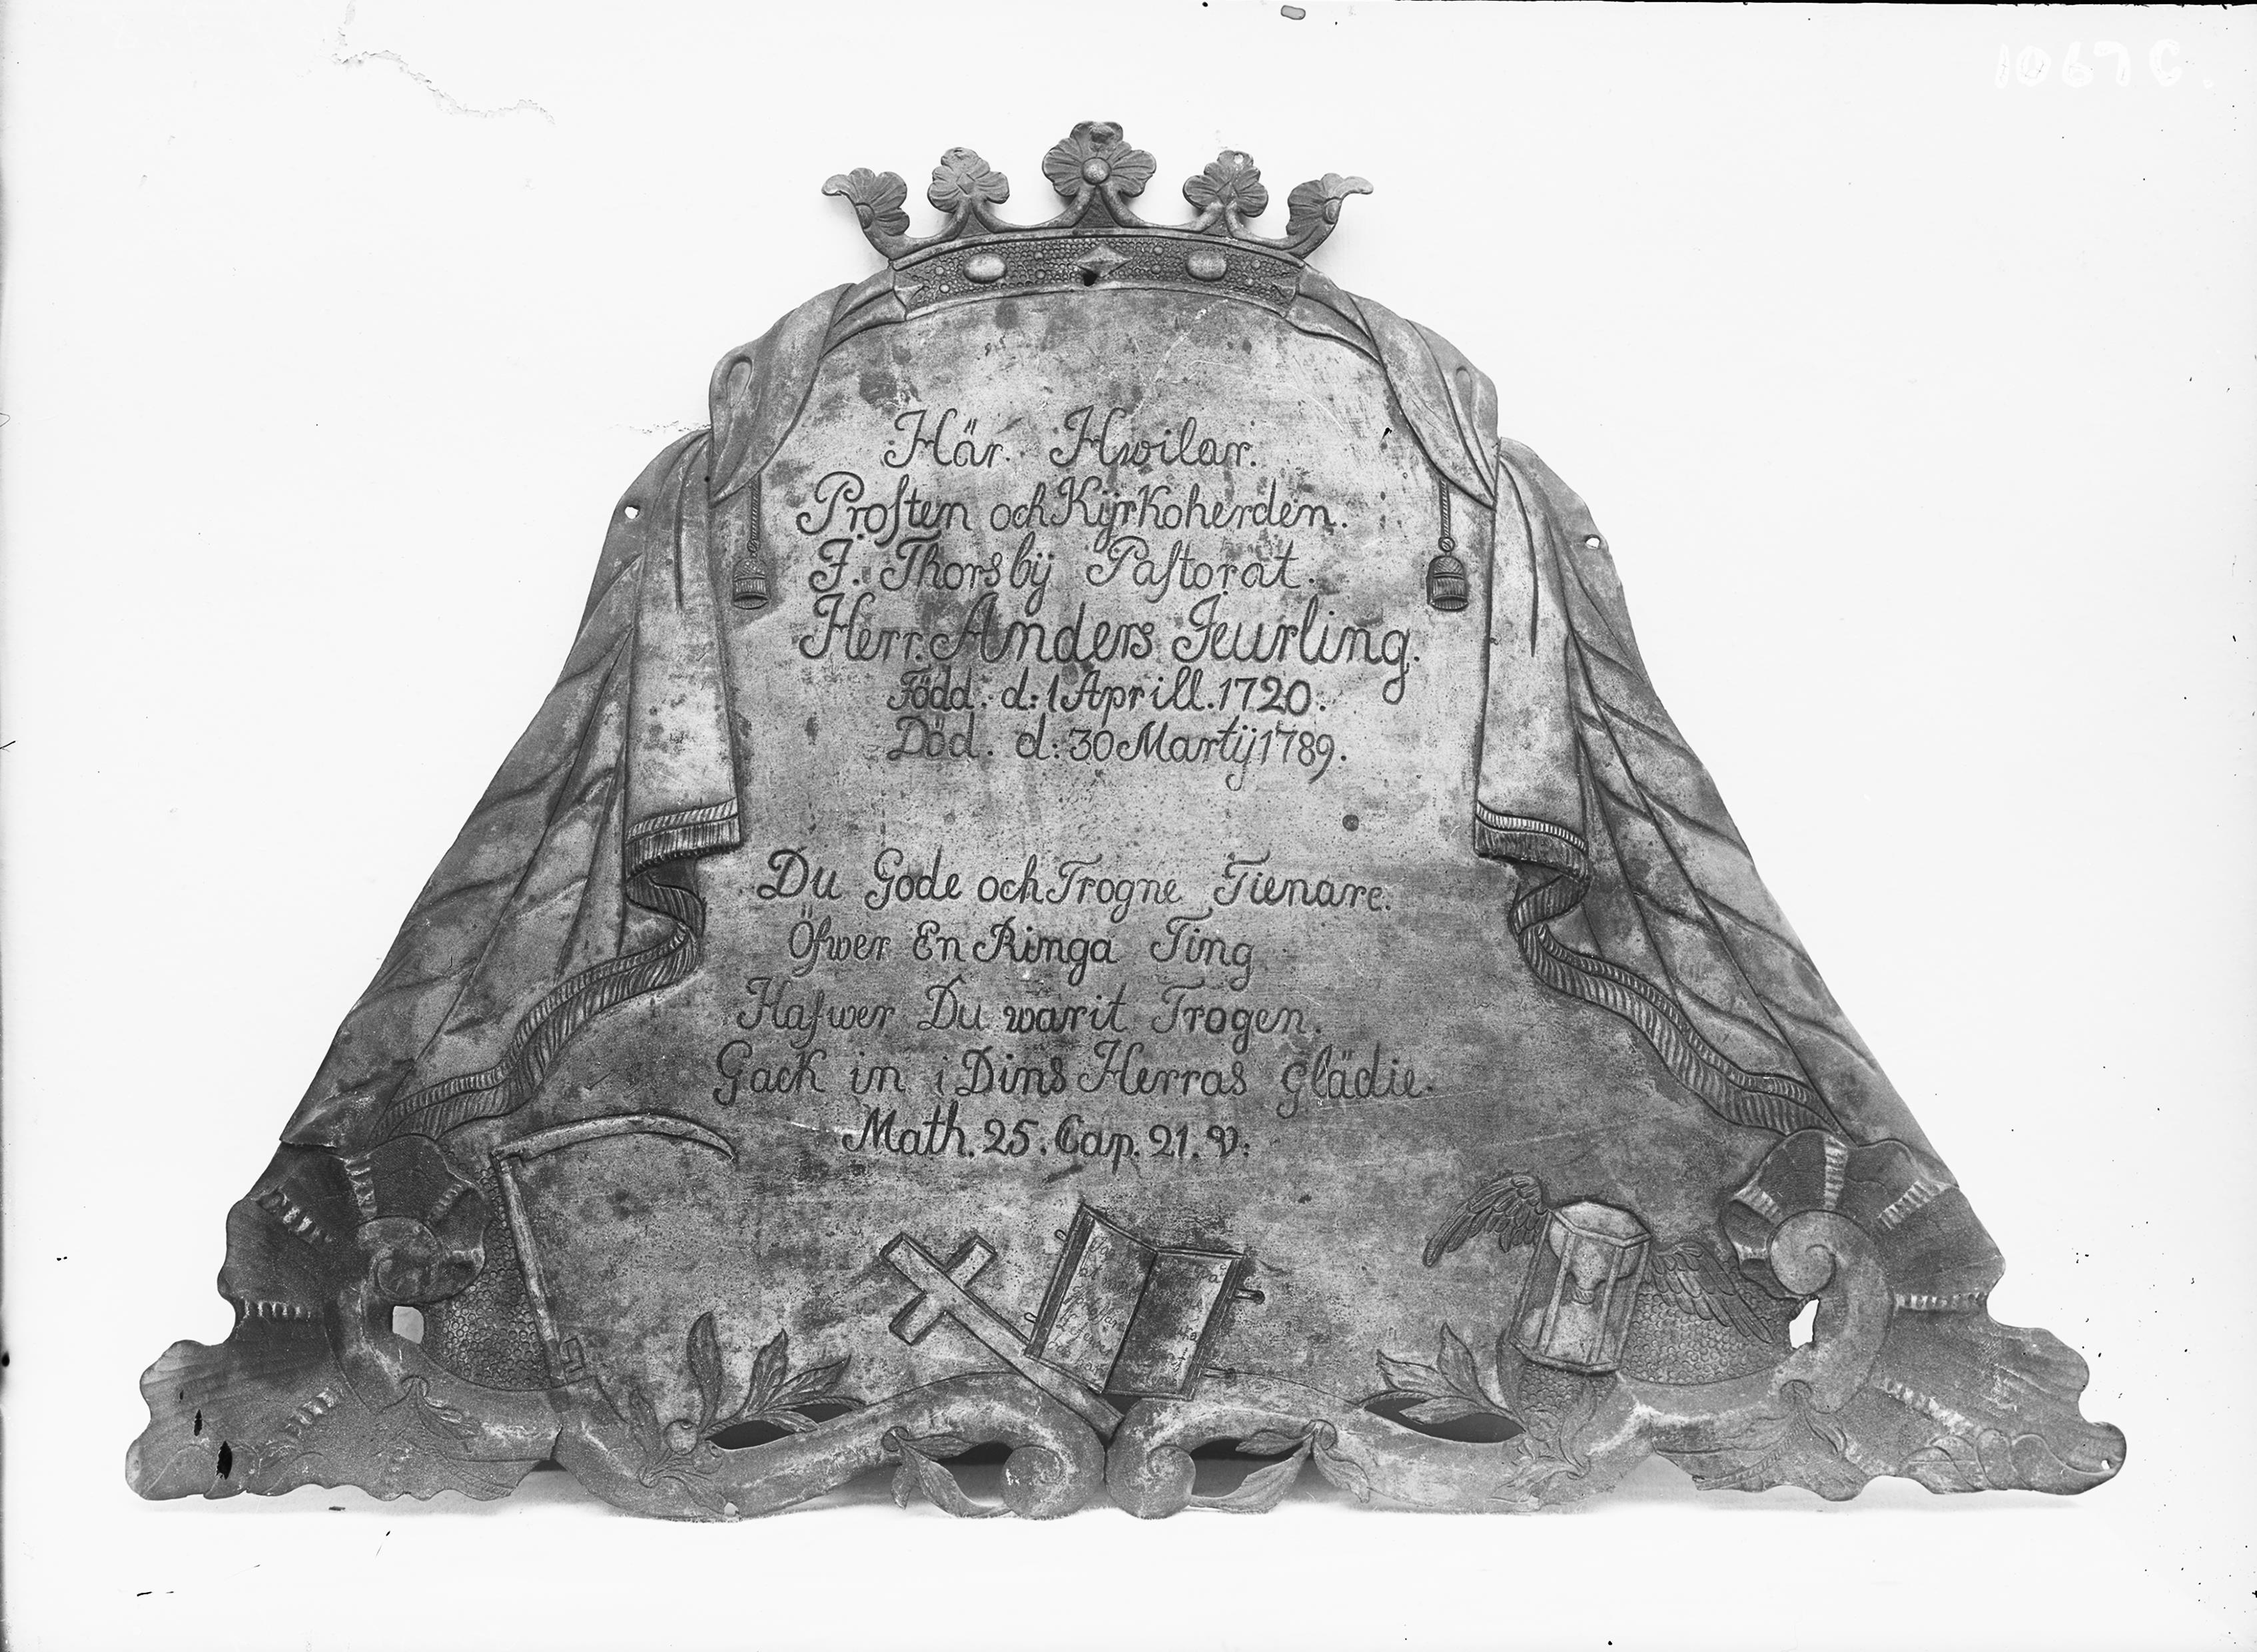 1067 C.
Här. Hwilar.
Prosten och Kÿrkoherden.
J. Thorsbÿ Pastorat.
Herr. Anders Jeurling.
Född. d: 1 Aprill. 1720.
Död. d: 30 Martÿ 1789.
Du Gode och Trogne Tienare.
Öfwer En Ringa Ting
Hafwer Du warit Trogen.
Gack in i Dins Herras Glädie.
Math. 25. Cap. 21. V: